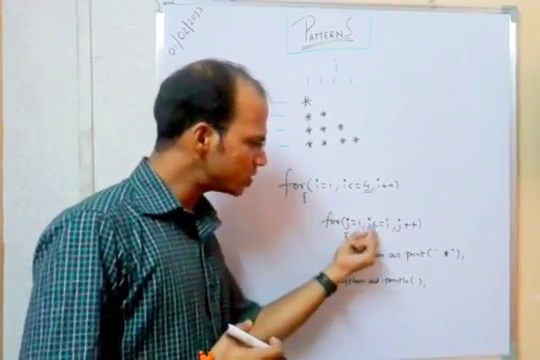 01/06/2013
PATTERNS
j
1 1 1 1
*
* *
* * *
* * * *
for(i=1, i<=4, i++)
{
for(j=1, j<=i, j++)
out print(" *"),
out println( ),